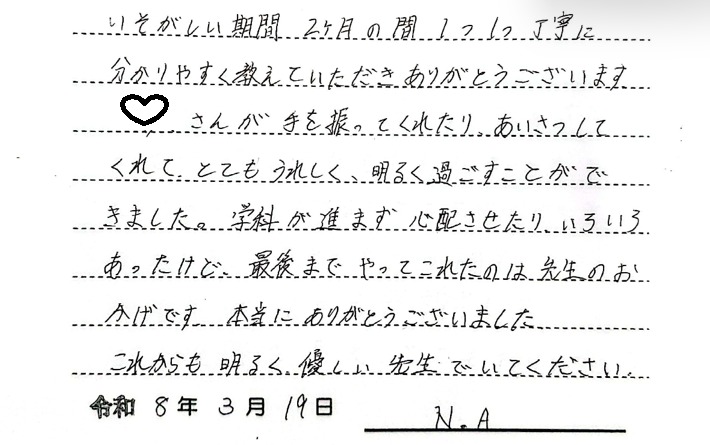 いそがしい期間 2ヶ月の間 1つ1つ丁寧に
分かりやすく教えていただきありがとうございます
さんが手を振ってくれたり、あいさつして
くれて、とてもうれしく、明るく過ごすことがで
きました。学科が進まず心配させたり、いろいろ
あったけど、最後までやってこれたのは先生のお
かげです 本当にありがとうございました
これからも明るく、優しい先生でいてください。
令和 8年 3月 19日 N.A